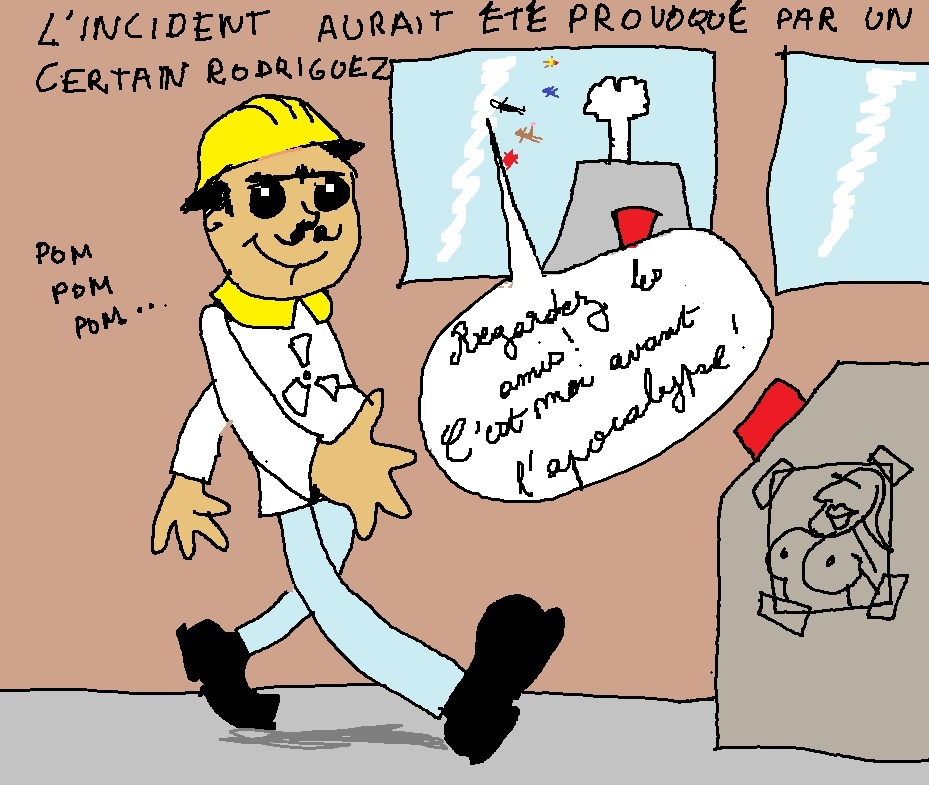 L'INCIDENT AURAIT ÉTÉ PROVOQUÉ PAR UN
CERTAIN RODRIGUEZ
POM
POM
POM...
Regardez les
amis!
C'est moi avant
l'apocalypse!